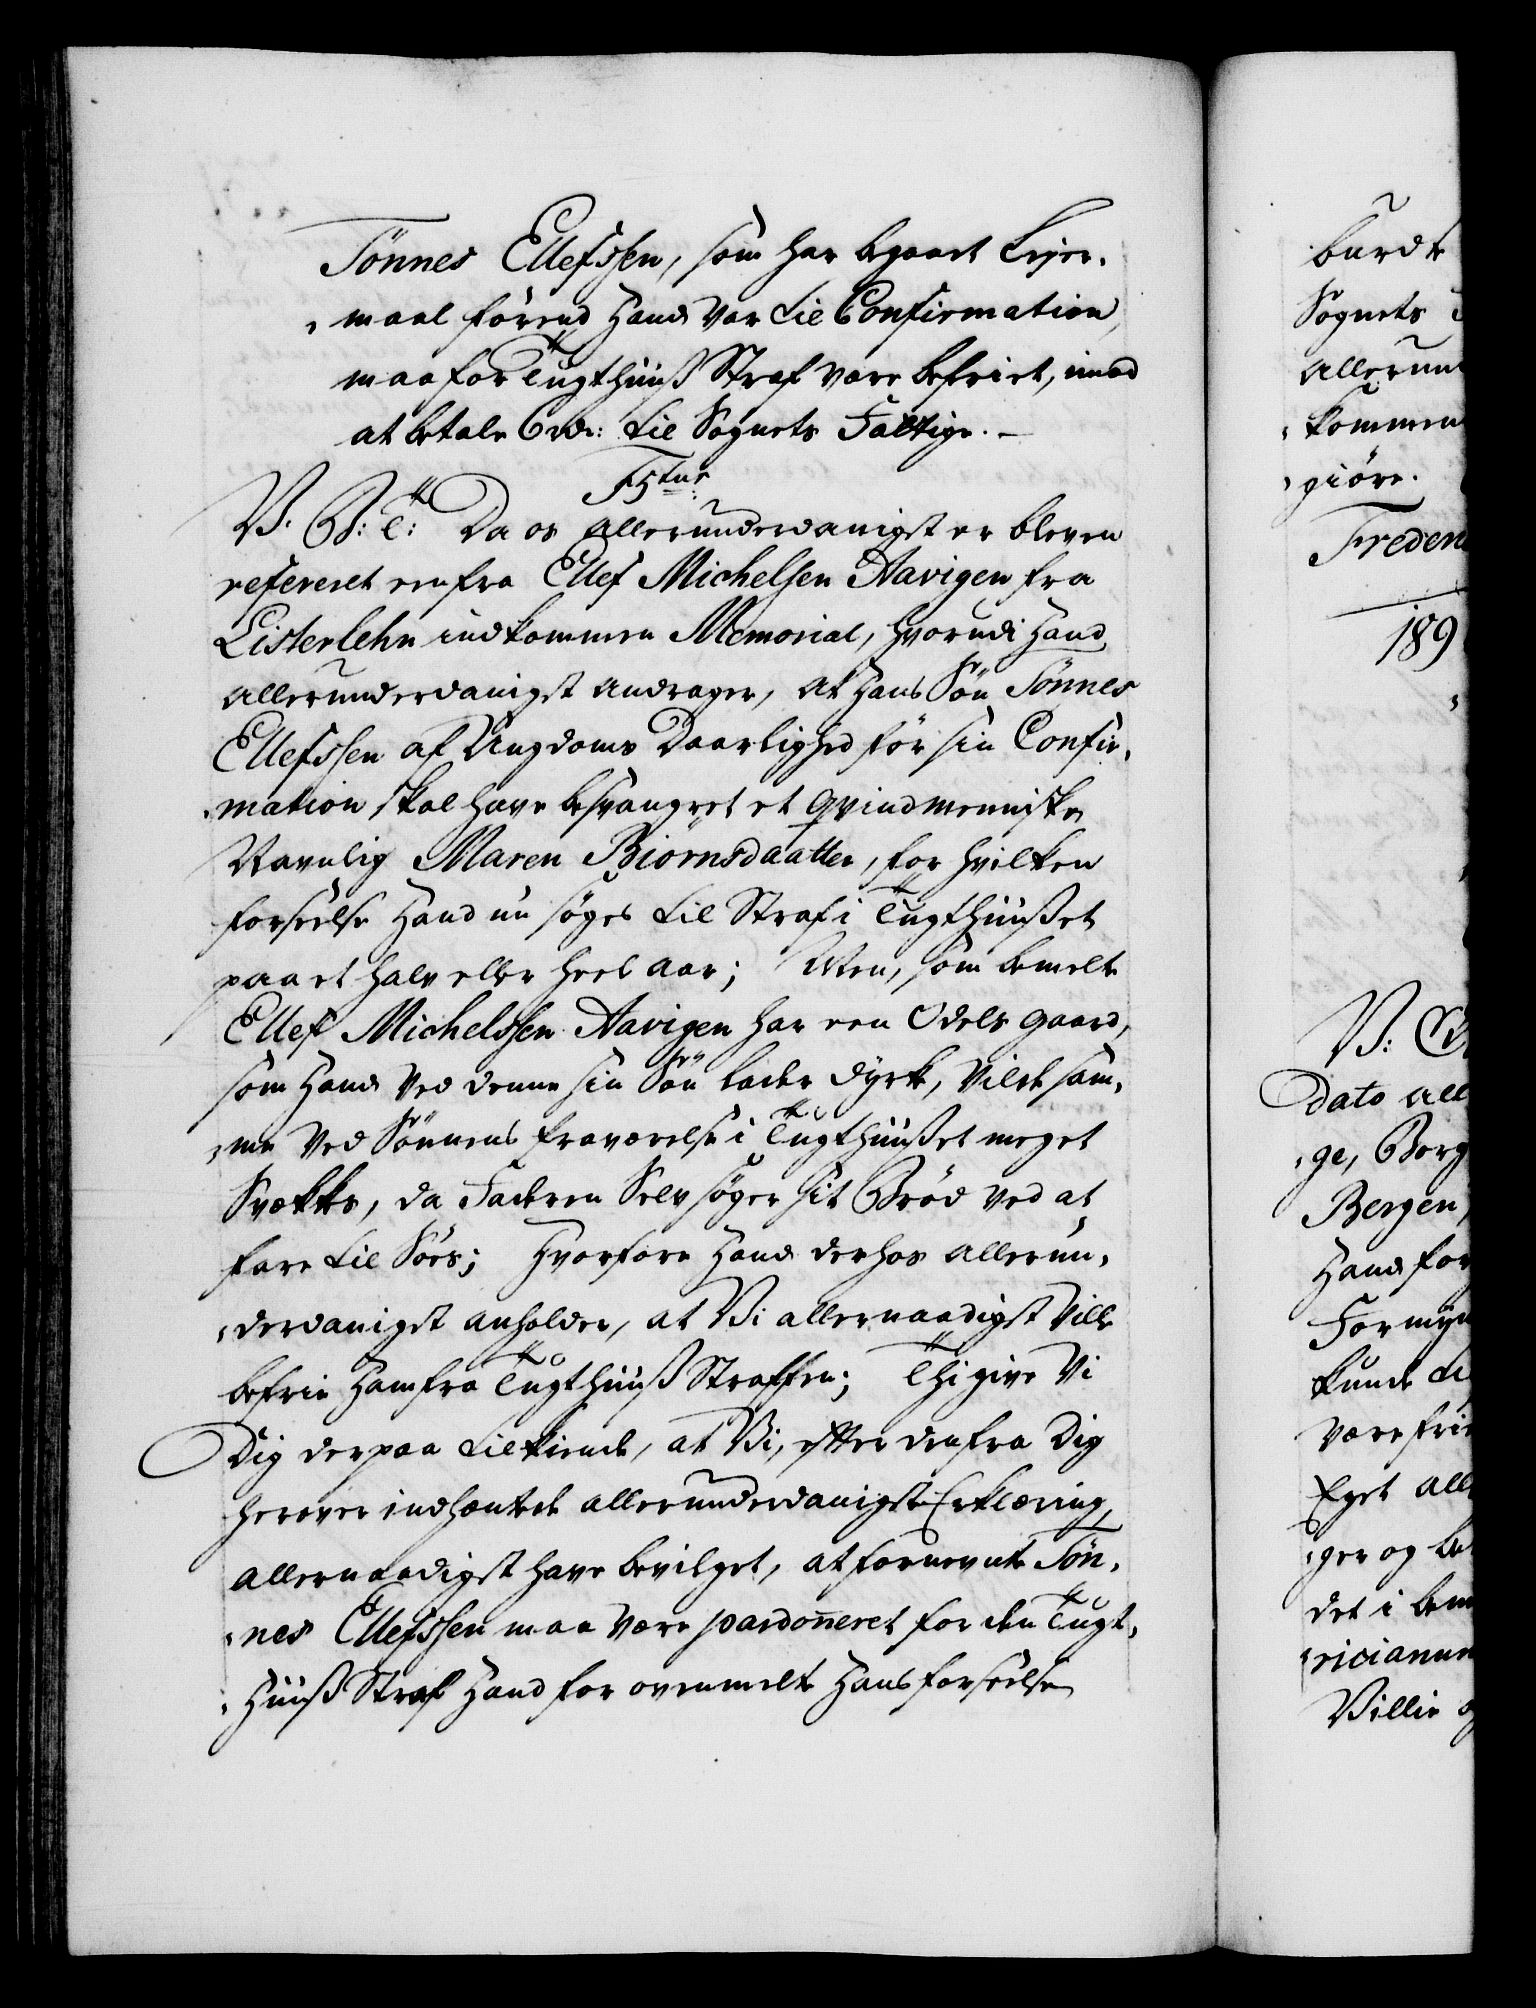 Tönnes Ellefssen, som har begaaet Lejer-
maal förend Hand var til Confirmation,
maa for Tugthuuß Straf være befriet, imod
at betale 6 rdr: til Sognets Fattige. –
F5tus
V. G: T: Da os allerunderdanigst er bleven
refereret een fra Ellef Michelsen Aavigen fra
Listerlehn indkommen Memorial, hvorudi Hand
allerunderdanigst andrager, at Hans Sön Tönnes
Ellefssen af Ungdoms Daarlighed för sin Confir-
mation skal have besvangret et Qvindmenniske
Navnlig Maren Biörnsdaatter, for hvilken
forseelse Hand nu söges til Straf i Tugthuußet
paa et halv eller heel aar; Men, som bemelte
Ellef Michelssen Aavigen har een Odels gaard,
som Hand ved denne sin Sön lader dyrke, vilde sam-
me ved Sönnens fraværelse i Tugthuußet meget
Svækkes, da Faderen Selv söger sit Bröd ved at
fare til Söes; Hvorfore Hand derhos allerun-
derdanigst anholder, at Vi allernaadigst ville
befrie Ham fra Tugthuuß Straffen; Thi give Vi
Dig derpaa tilkiende, at Vi, efter den fra Dig
herover indhæntede allerunderdanigste Erklæring,
allernaadigst have bevilget, at fornevnte Tön-
nes Ellefssen maa være pardonneret for den Tugt-
Huuß Straf Hand for ovenmelte Hans forseelse
burde
Sognets
allerun
kommen
giöre.
Freden
189
V: G
dato all
ge, Borg
Bergen,
Hand for
Formyn
kunde
være frie
Eget all
ger og be
det i bem
ricianum
Villie